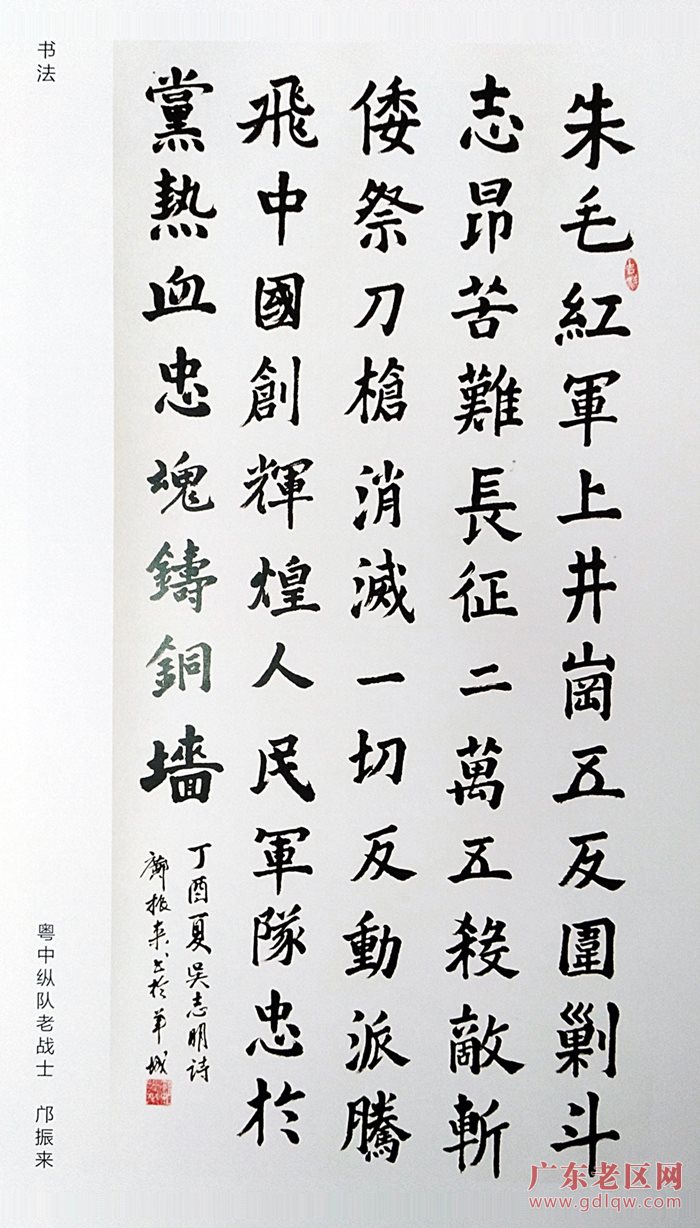 书法
朱毛紅軍上井崗五反圍剿斗
志昂苦難長征二萬五殺敵斬
倭祭刀槍消滅一切反動派騰
飛中國創輝煌人民軍隊忠於
黨熱血忠魂鑄銅墻
丁酉夏吴志明诗
鄺振来书於羊城
粤中纵队老战士 邝振来
广东老区网
www.gdlqw.com